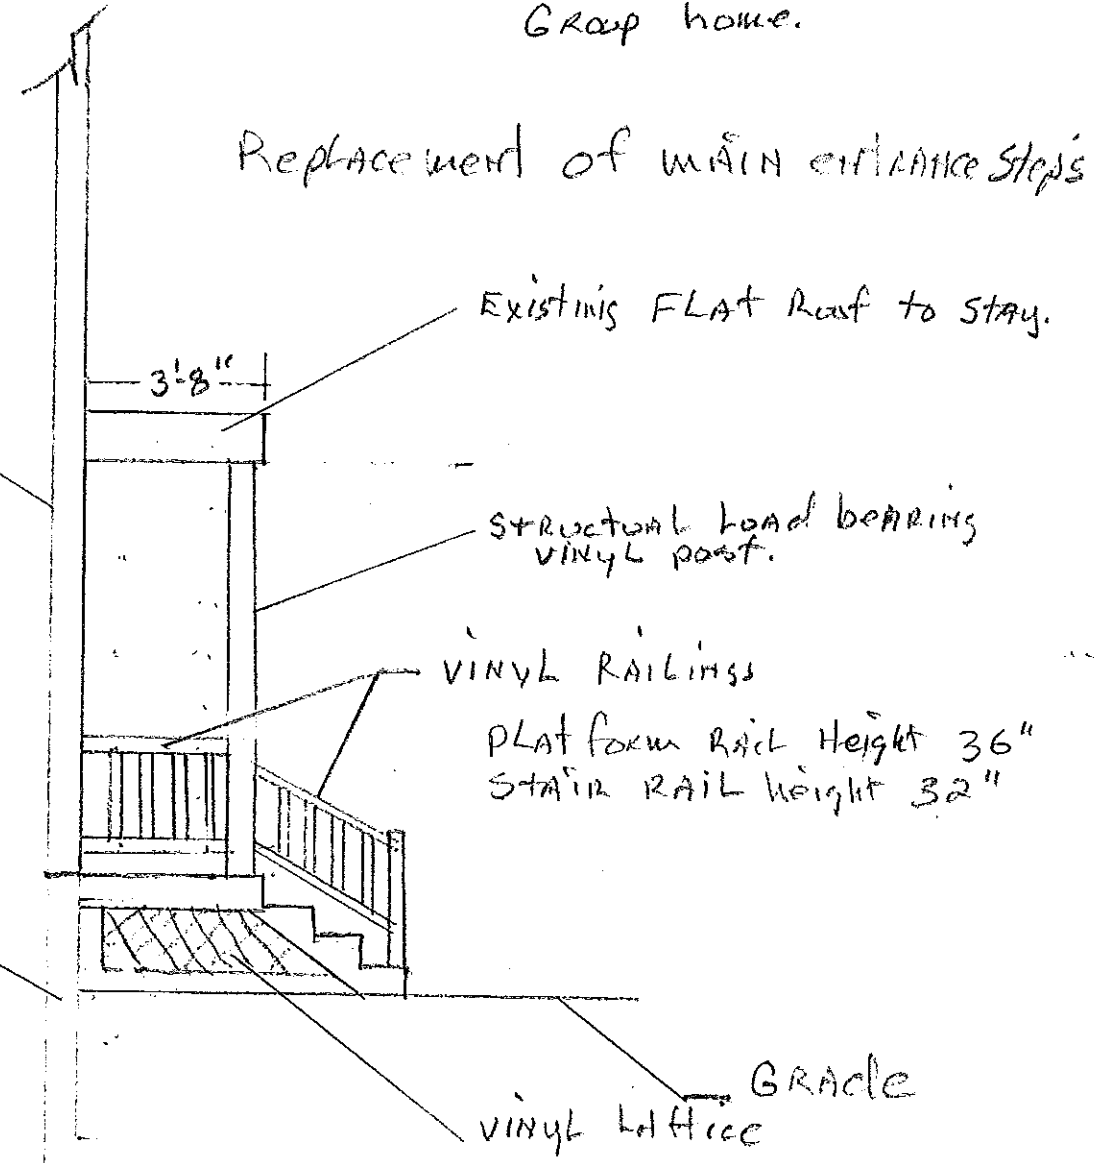 Group home.
Replacement of main entrance steps
Existing FLAT Roof to stay.
3'-8"
STRUCTUAL LOAD BEARING
VINYL post.
VINYL RAILINGS
PLATform RAIL Height 36"
STAIR RAIL height 32"
GRADE
VINYL LATTICE